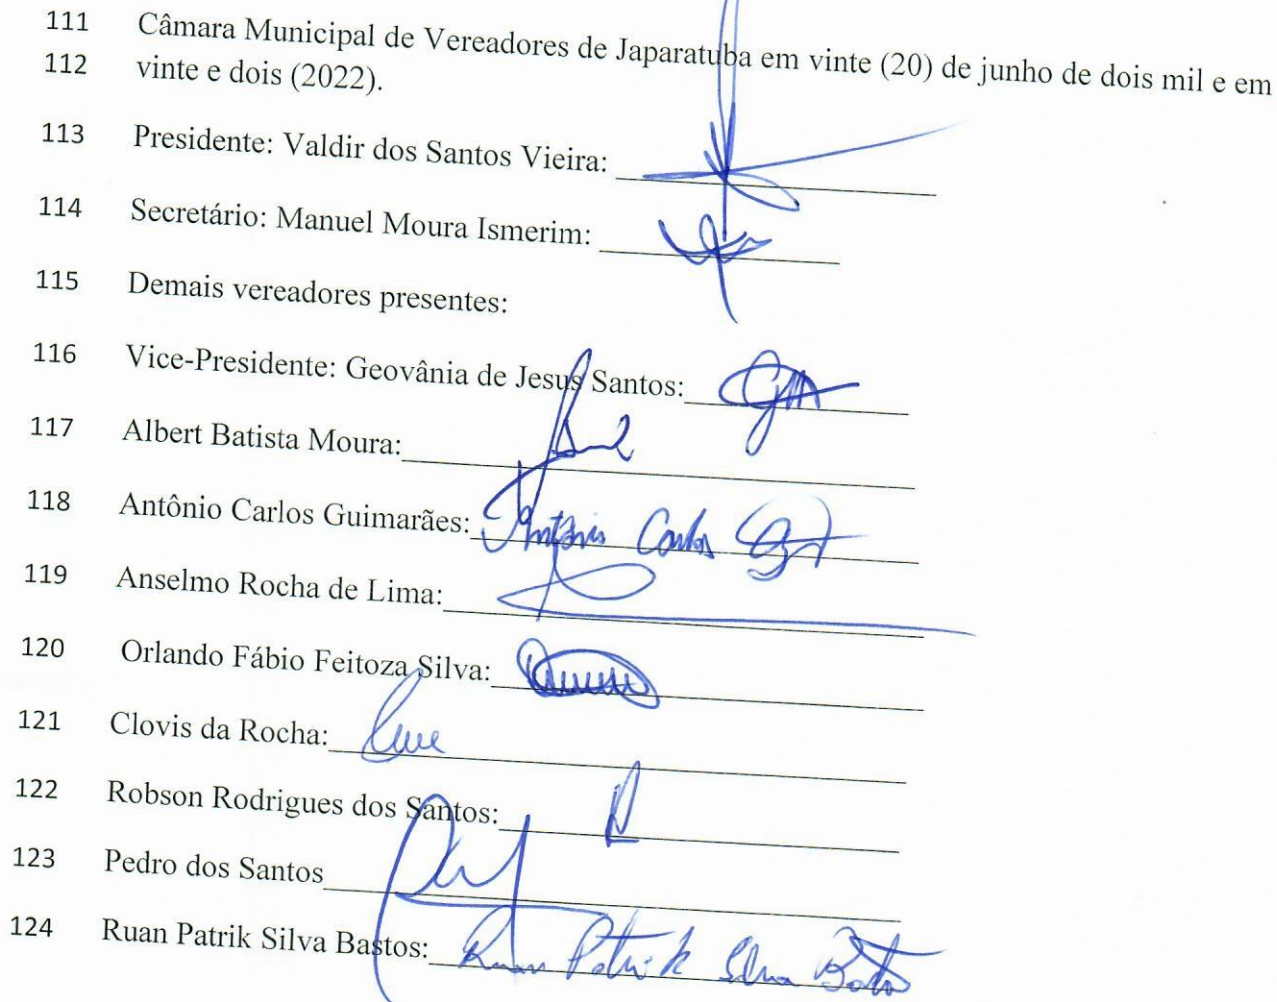 111 Câmara Municipal de Vereadores de Japaratuba em vinte (20) de junho de dois mil e em
112 vinte e dois (2022).
113 Presidente: Valdir dos Santos Vieira:
114 Secretário: Manuel Moura Ismerim:
115 Demais vereadores presentes:
116 Vice-Presidente: Geovânia de Jesus Santos:
117 Albert Batista Moura:
118 Antônio Carlos Guimarães: Antônio Carlos
119 Anselmo Rocha de Lima:
120 Orlando Fábio Feitoza Silva:
121 Clovis da Rocha:
122 Robson Rodrigues dos Santos:
123 Pedro dos Santos
124 Ruan Patrik Silva Bastos: Ruan Patrik Silva Bastos